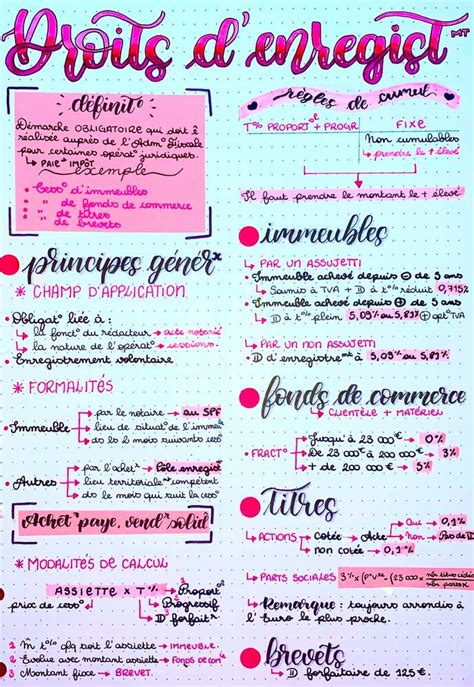 Droits d'enregist MT
définit°
Démarche OBLIGATOIRE qui doit ê
réalisée auprès de l'Adm° Fiscale
pour certaines opérat° juridiques.
↳ PAIEt IMPÔT
exemple
• Cess° d'immeubles
• " de fonds de commerce
• " de titres
• " de brevets
principes générx
* CHAMP D'APPLICATION
• Obligat° liée à :
↳ la fonct° du rédacteur → acte notarié
↳ la nature de l'opérat° → cessions.
• Enregistrement volontaire
* FORMALITÉS
• Immeuble
→ par le notaire → au SPF
→ lieu de situat° de l'immeu
→ ds ls 2 mois suivants cess°
• Autres
→ par l'achetr → Pôle enregist
→ lieu territorialemt compétent
→ ds le mois qui suit la cess°
Achetr paye, vendr solid
* MODALITÉS DE CALCUL
ASSIETTE x T%
prix de cess°
1 Proport°
2 Progressif
3 D forfait
1 m̂ t% qq soit l'assiette → IMMEUBLE.
2 Evolue avec montant assiette → FONDS DE COM
3 Montant fixe → BREVET.
règles de cumul
T% PROPORT°L et PROGR
FIXE
Non cumulables
↳ prendre le + élevé
Il faut prendre le montant le + élevé
immeubles
↳ PAR UN ASSUJETTI
• Immeuble achevé depuis ⊖ de 5 ans
↳ Soumis à TVA + D à t% réduit 0,715%
• Immeuble achevé depuis ⊕ de 5 ans
↳ D à t% plein 5,09% ou 5,81% + opt° TVA
↳ PAR UN NON ASSUJETTI
↳ D d'enregistremt à 5,09% ou 5,81%
fonds de commerce
↳ CLIENTÈLE + MATÉRIEL
• FRACT°
→ Jusqu'à 23 000€ → 0%
→ De 23 000€ à 200 000€ → 3%
→ + de 200 000€ → 5%
Titres
↳ ACTIONS
→ Cotée → Acte
→ Oui → 0,1%
→ Non → Pas de D
→ non cotée → 0,1%
↳ PARTS SOCIALES 3% x (Px Vte - (23 000 x nb titres cédés / nb parts))
↳ Remarque : toujours arrondis à
l'Euro le plus proche.
brevets
↳ D forfaitaire de 125€.